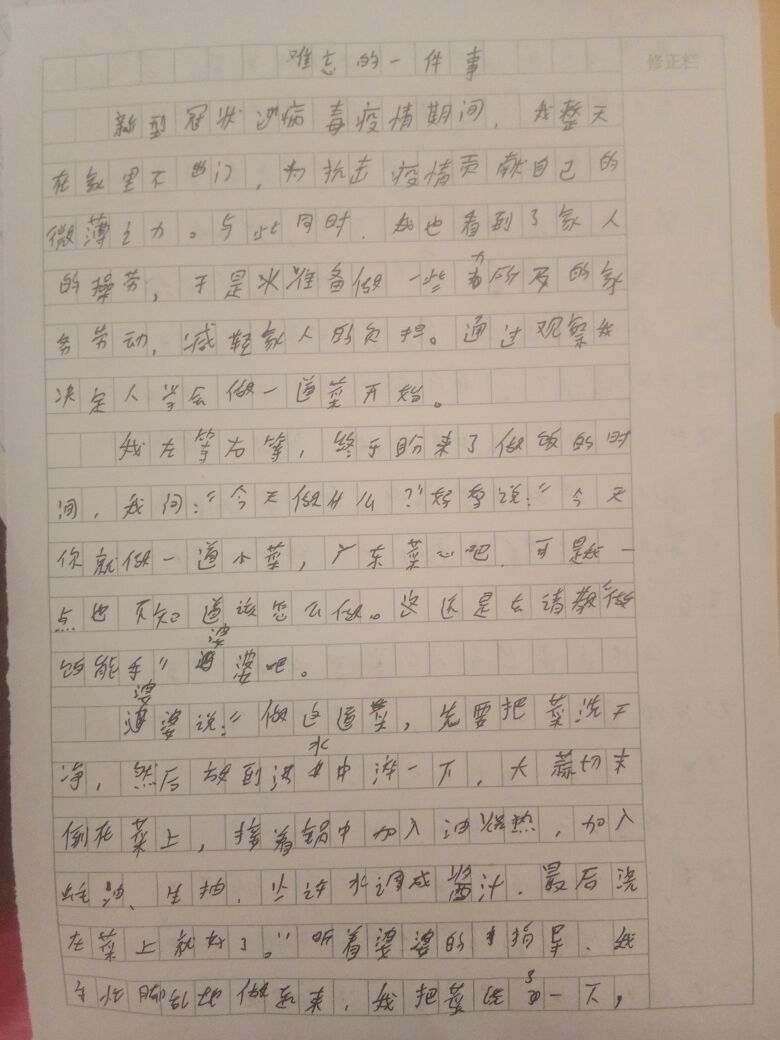 修正栏
难忘的一件事
新型冠状病毒疫情期间，我整天
在家里不出门，为抗击疫情贡献自己的
微薄之力。与此同时，我也看到了家人
的操劳，于是准备做一些力所及的家
务劳动，减轻家人的负担。通过观察我
决定人学会做一道菜开始。
我左等右等，终于盼来了做饭的时
间，我问：“今天做什么？”妈妈说：“今天
你就做一道小菜，广东菜心吧，可是我一
点也不知道该怎么做。还是去请教“做
饭能手”婆婆吧。
婆婆说：“做这道菜，先要把菜洗干
净，然后放到沸水中淋一下，大蒜切末
倒在菜上，接着锅中加入油烧热，加入
蚝油、生抽、水调成酱汁，最后浇
在菜上就好了。”听着婆婆的指导，我
我把菜一下，